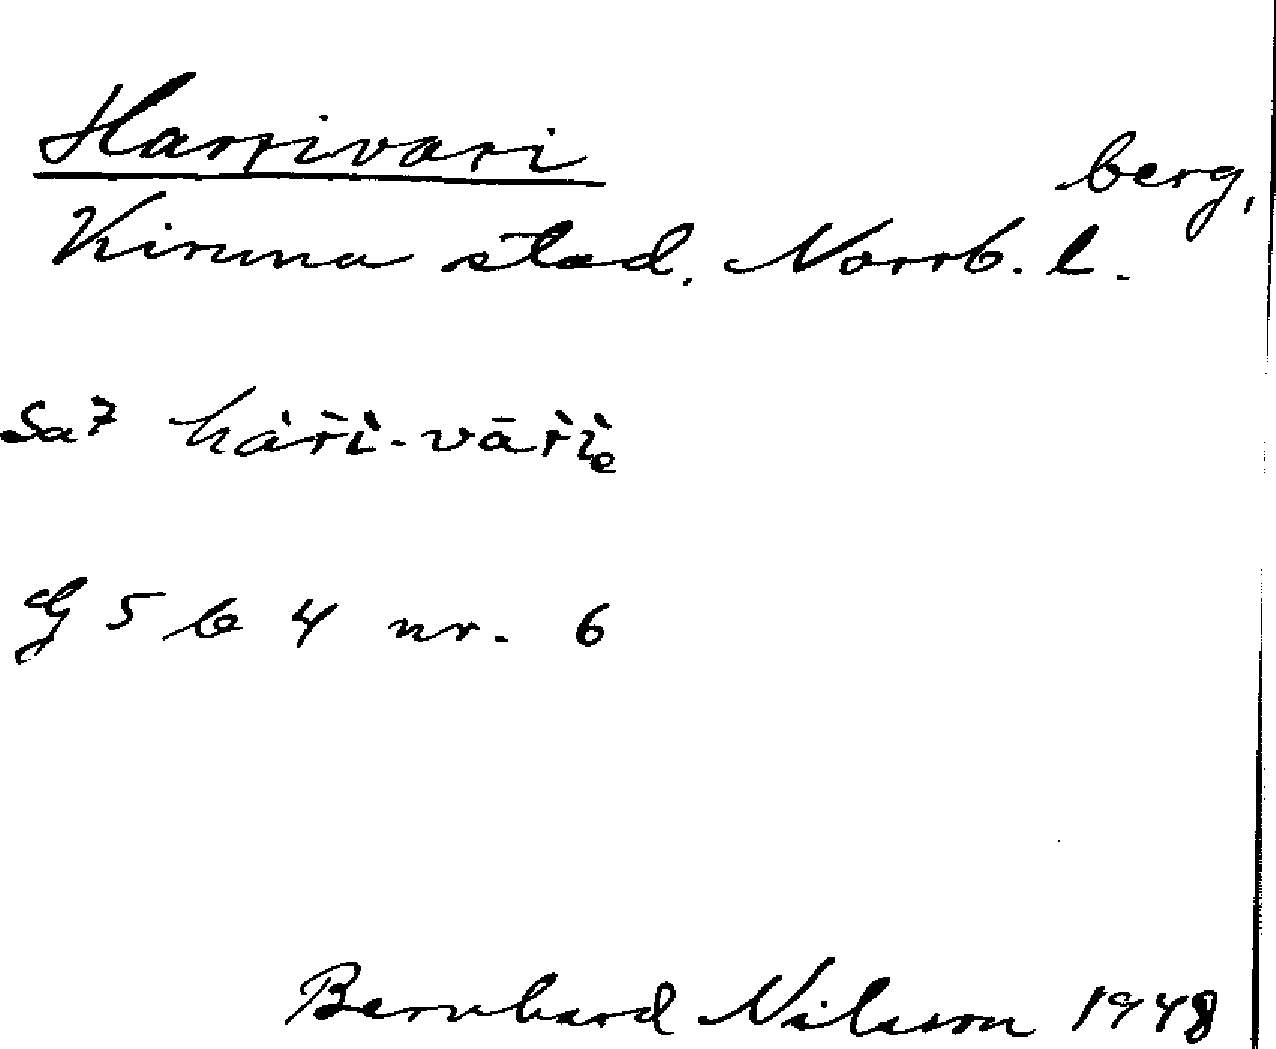 Harrivari berg,
Kiruna stad, Norrb. l.
Sa7
G 5 b 4 nr. 6
Bernhard Nilsson 1948